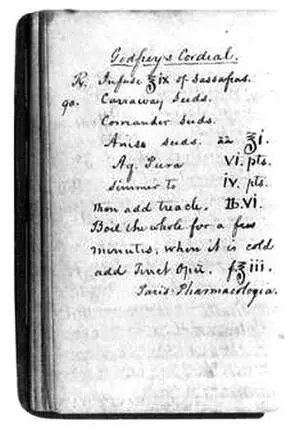 Godfrey's Cordial.
R. Infuse ℥ix of Sassafras.
90. Carraway Seeds.
Coriander Seeds.
Anise seeds. aa ℥i.
Aq. Pura VI. pts.
Simmer to iv. pts.
then add treacle. lb.VI.
Boil the whole for a few
minutes, when it is cold
add Tinct Opii. f℥iii.
Paris Pharmacologia.